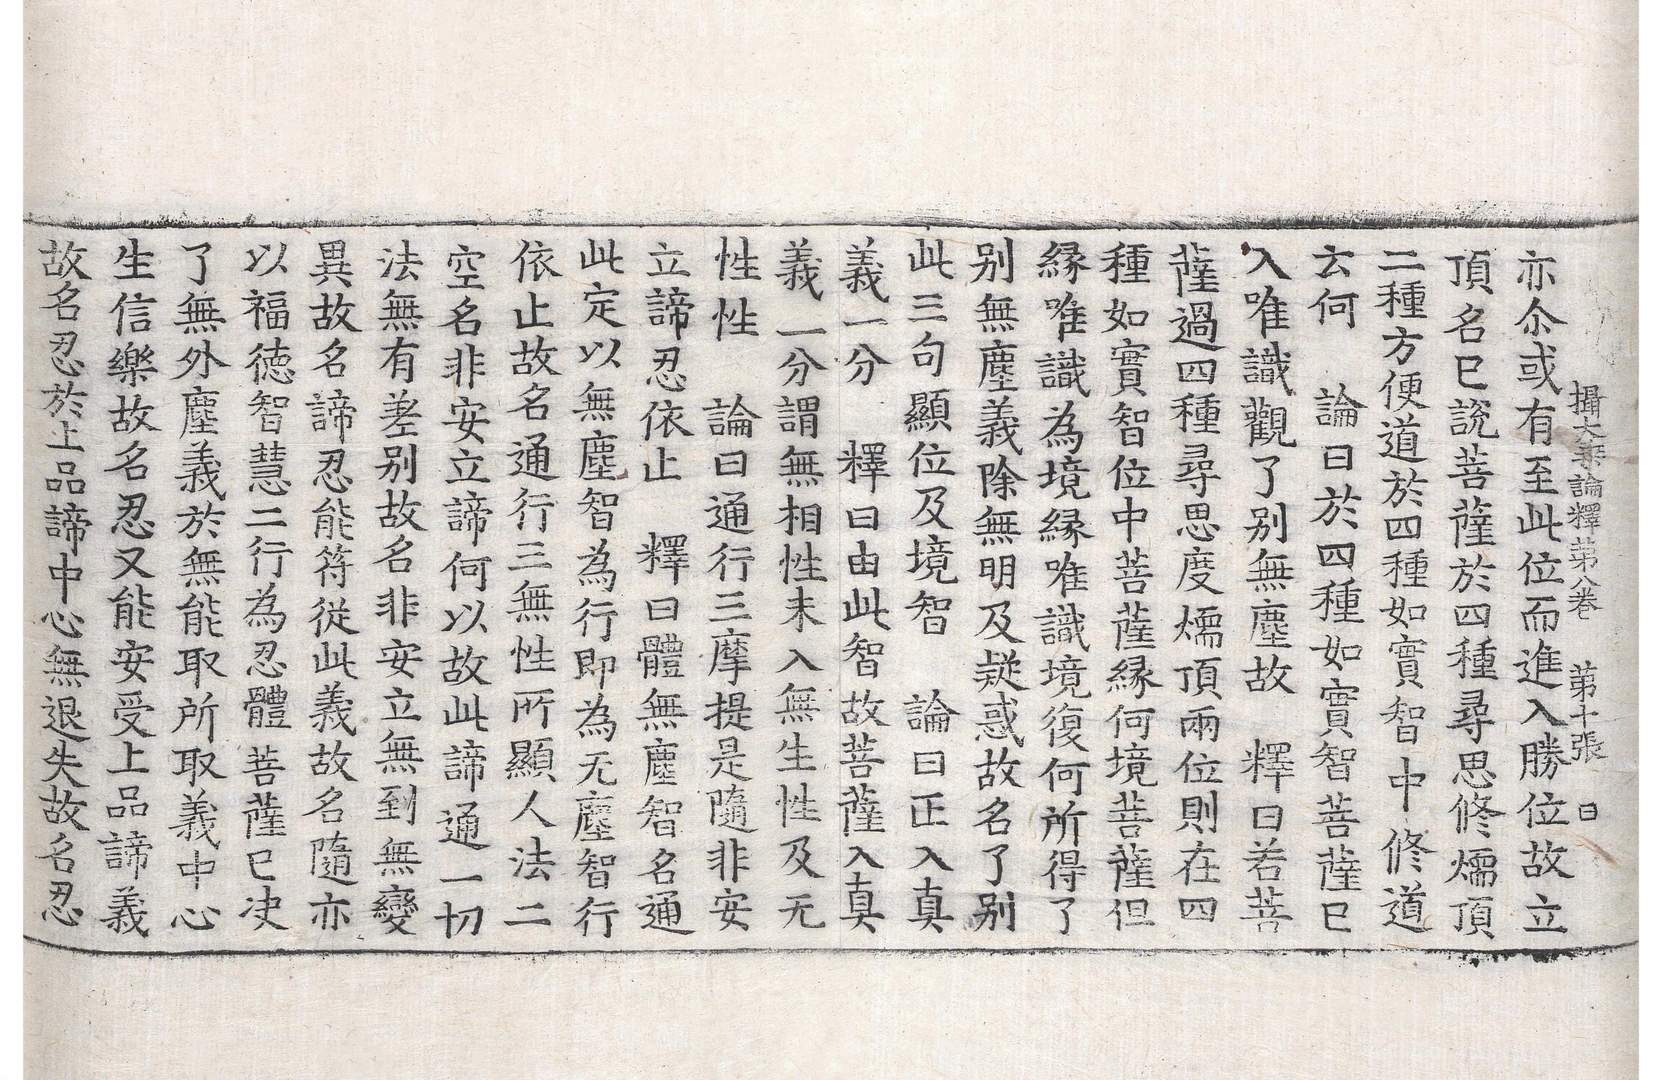 攝大乗論釋第八卷　第十張　日
亦尒或有至此位而進入勝位故立
頂名已説菩薩於四種尋思修煗頂
二種方便道於四種如實智中修道
云何　論曰於四種如實智菩薩已
入唯識觀了別無塵故　釋曰若菩
薩過四種尋思度煗頂兩位則在四
種如實智位中菩薩縁何境菩薩但
縁唯識為境縁唯識境復何所得了
別無塵義除無明及疑惑故名了別
此三句顯位及境智　論曰正入真
義一分　釋曰由此智故菩薩入真
義一分謂無相性未入無生性及无
性性　論曰通行三摩提是隨非安
立諦忍依止　釋曰體無塵智名通
此定以無塵智為行即為无塵智行
依止故名通行三無性所顯人法二
空名非安立諦何以故此諦通一切
法無有差別故名非安立無到無變
異故名諦忍能符從此義故名隨亦
以福徳智慧二行為忍體菩薩已决
了無外塵義於無能取所取義中心
生信樂故名忍又能安受上品諦義
故名忍於上品諦中心無退失故名忍